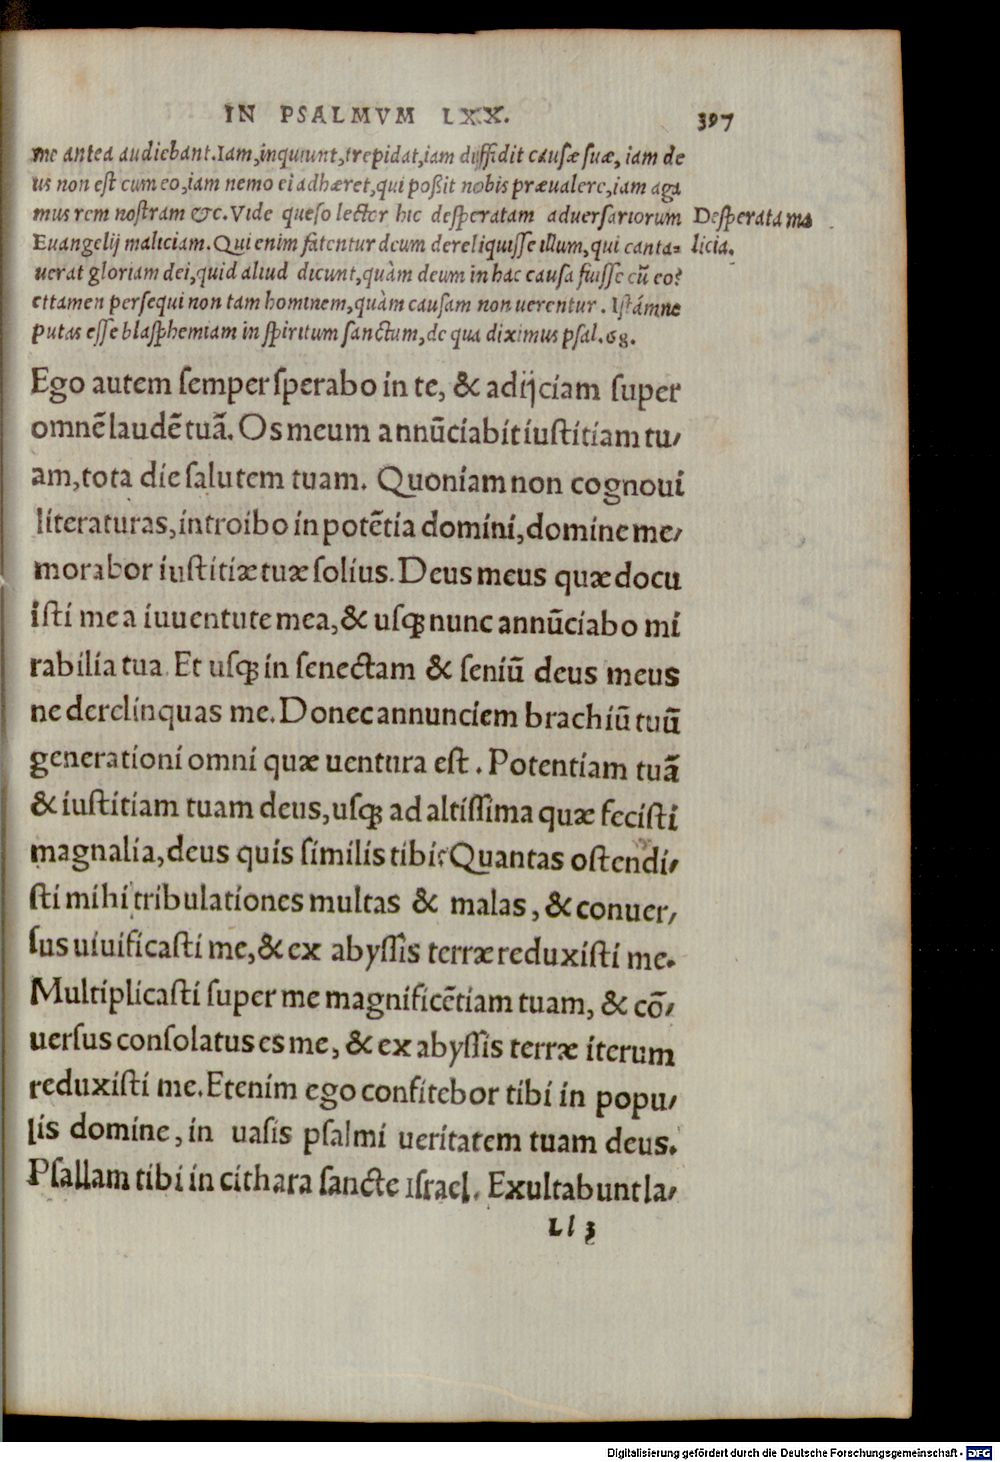 IN PSALMVM LXX. 397
me antea audiebant. Iam, inquiunt, trepidat, iam diffidit causæ suæ, iam de
us non est cum eo, iam nemo ei adhæret, qui poßit nobis præualere, iam aga
mus rem nostram &c. Vide queso lector hic desperatam aduersariorum
Euangelij maliciam. Qui enim fatentur deum dereliquisse illum, qui canta=
uerat gloriam dei, quid aliud dicunt, quàm deum in hac causa fuisse cū eo?
ettamen persequi non tam hominem, quàm causam non uerentur. Istámne
putas esse blasphemiam in spiritum sanctum, de qua diximus psal. 68.
Desperata ma
licia.
Ego autem semper sperabo in te, & adijciam super
omnē laudē tuā. Os meum annūciabit iustitiam tu/
am, tota die salutem tuam. Quoniam non cognoui
literaturas, introibo in potētia domini, domine me/
morabor iustitiæ tuæ solius. Deus meus quæ docu
isti me a iuuentute mea, & usq; nunc annūciabo mi
rabilia tua. Et usq; in senectam & seniū deus meus
ne derelinquas me. Donec annunciem brachiū tuū
generationi omni quæ uentura est. Potentiam tuā
& iustitiam tuam deus, usq; ad altissima quæ fecisti
magnalia, deus quis similis tibi? Quantas ostendi/
sti mihi tribulationes multas & malas, & conuer/
sus uiuificasti me, & ex abyssis terræ reduxisti me.
Multiplicasti super me magnificētiam tuam, & cō/
uersus consolatus es me, & ex abyssis terræ iterum
reduxisti me. Etenim ego confitebor tibi in popu/
lis domine, in uasis psalmi ueritatem tuam deus.
Psallam tibi in cithara sancte israel. Exultabunt la/
Ll 3
Digitalisierung gefördert durch die Deutsche Forschungsgemeinschaft - DFG